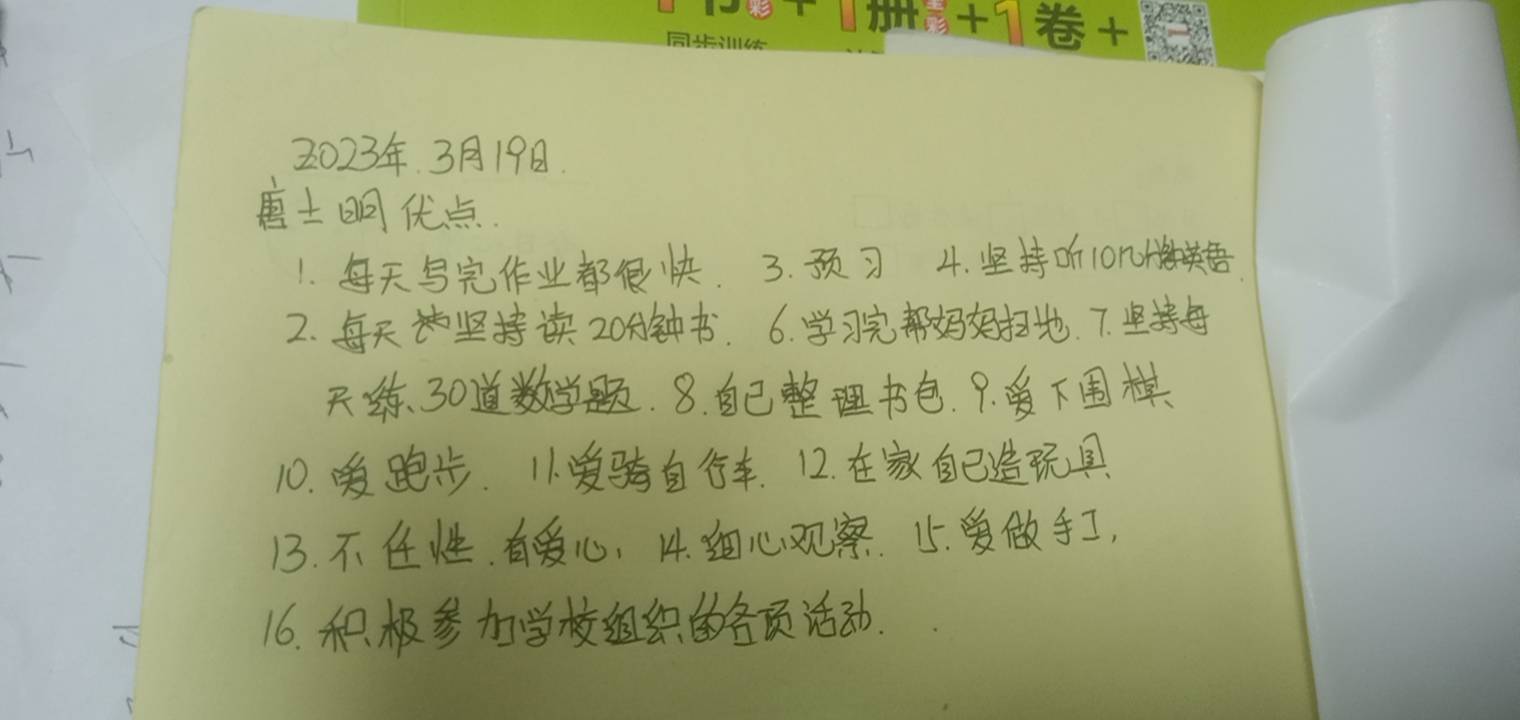 1册 + 1卷 +
同步训练
2023年.3月19日.
唐士明优点.
1. 每天写完作业都很快. 3. 预习 4. 坚持听10几分钟英语.
2. 每天坚持读20分钟书. 6. 学习完帮妈妈扫地. 7. 坚持每
天练30道数学题. 8. 自己整理书包. 9. 爱下围棋
10. 爱跑步. 11. 爱骑自行车. 12. 在家自己造玩具
13. 不任性.有爱心, 14. 细心观察. 15. 爱做手工,
16. 积极参加学校组织的各项活动.